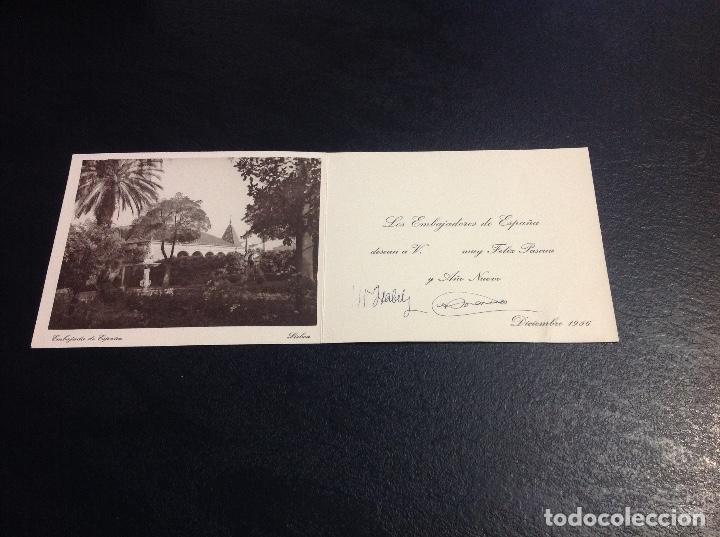 Embajada de España Lisboa
Los Embajadores de España
desean a V. muy Feliz Pascua
y Año Nuevo
Mª Isabel
Diciembre 1956
todocoleccion.net